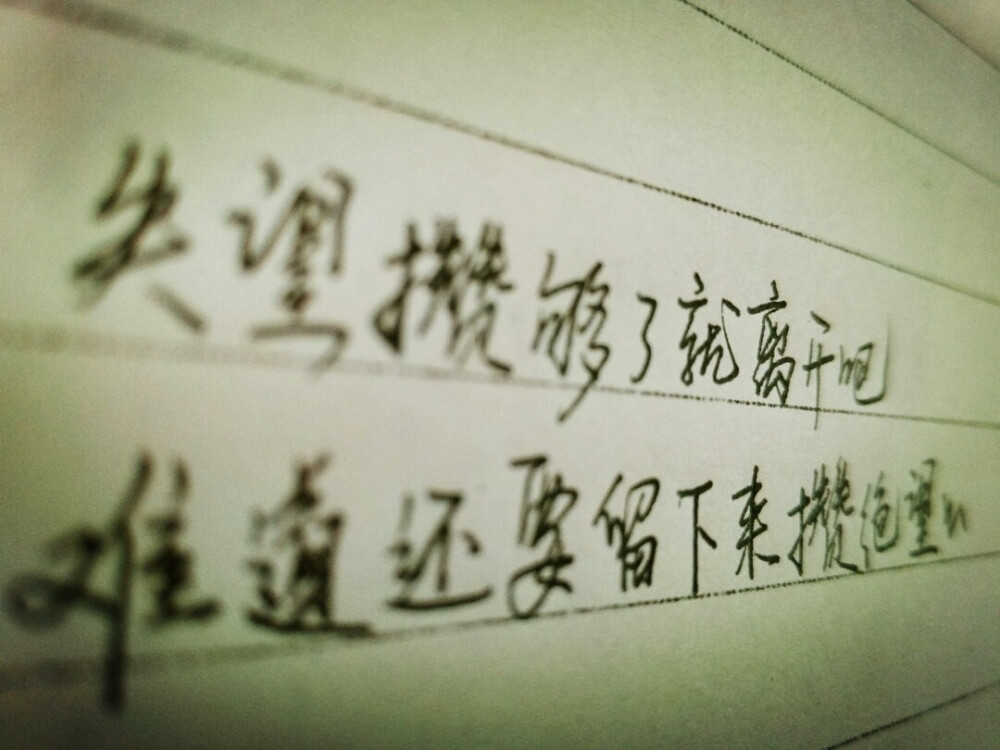 失望攒够了就离开吧
难道还要留下来攒绝望